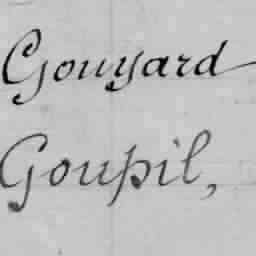 Gouyard
Goupil,